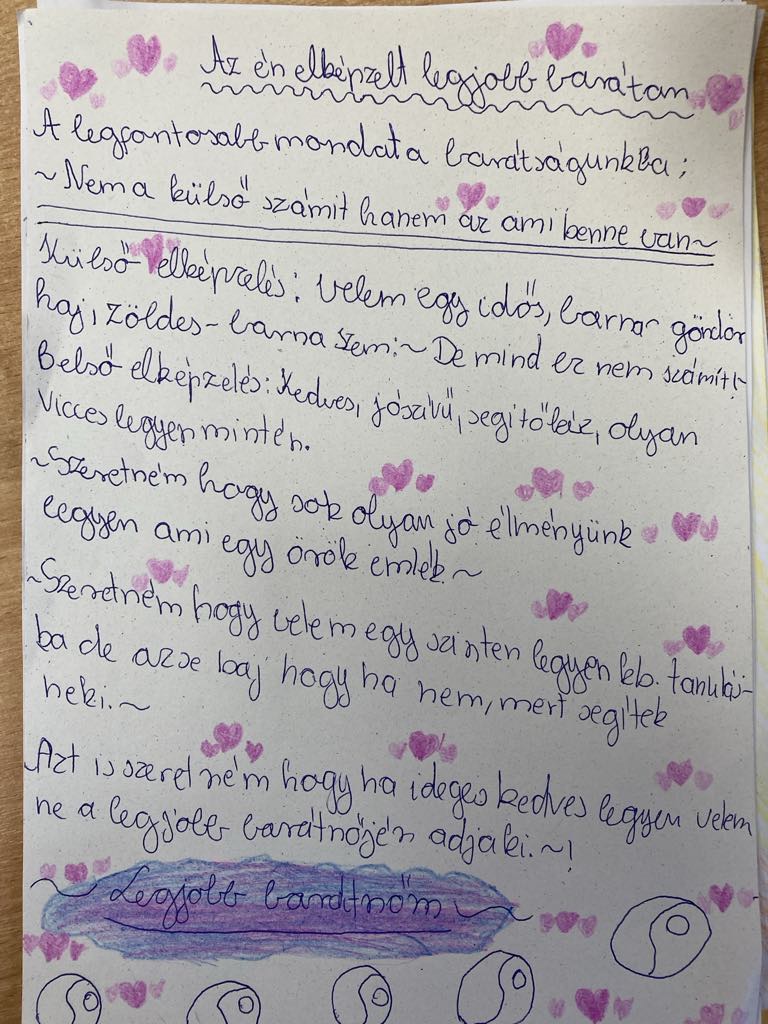 Az én elképzelt legjobb barátam
A legfontosabb mondat a barátságunkba;
~Nem a külső számit hanem az ami benne van~
Külső elképzelés: Velem egy idős, barna göndör
haj, zöldes-barna szem:~ De mind ez nem számit!~
Belső elképzelés: Kedves, jószivű, segitőkéz, olyan
vicces legyen mint én.
~Szeretném hogy sok olyan jó élményünk
legyen ami egy örök emlék.~
~Szeretném hogy velem egy szinten legyen kb. tanulás-
ba de az se baj hogy ha nem, mert segitek
neki.~
Azt is szeretném hogy ha ideges kedves legyen velem
ne a legjobb barátnőjén adja ki.~!
~ Legjobb barátnőm ~